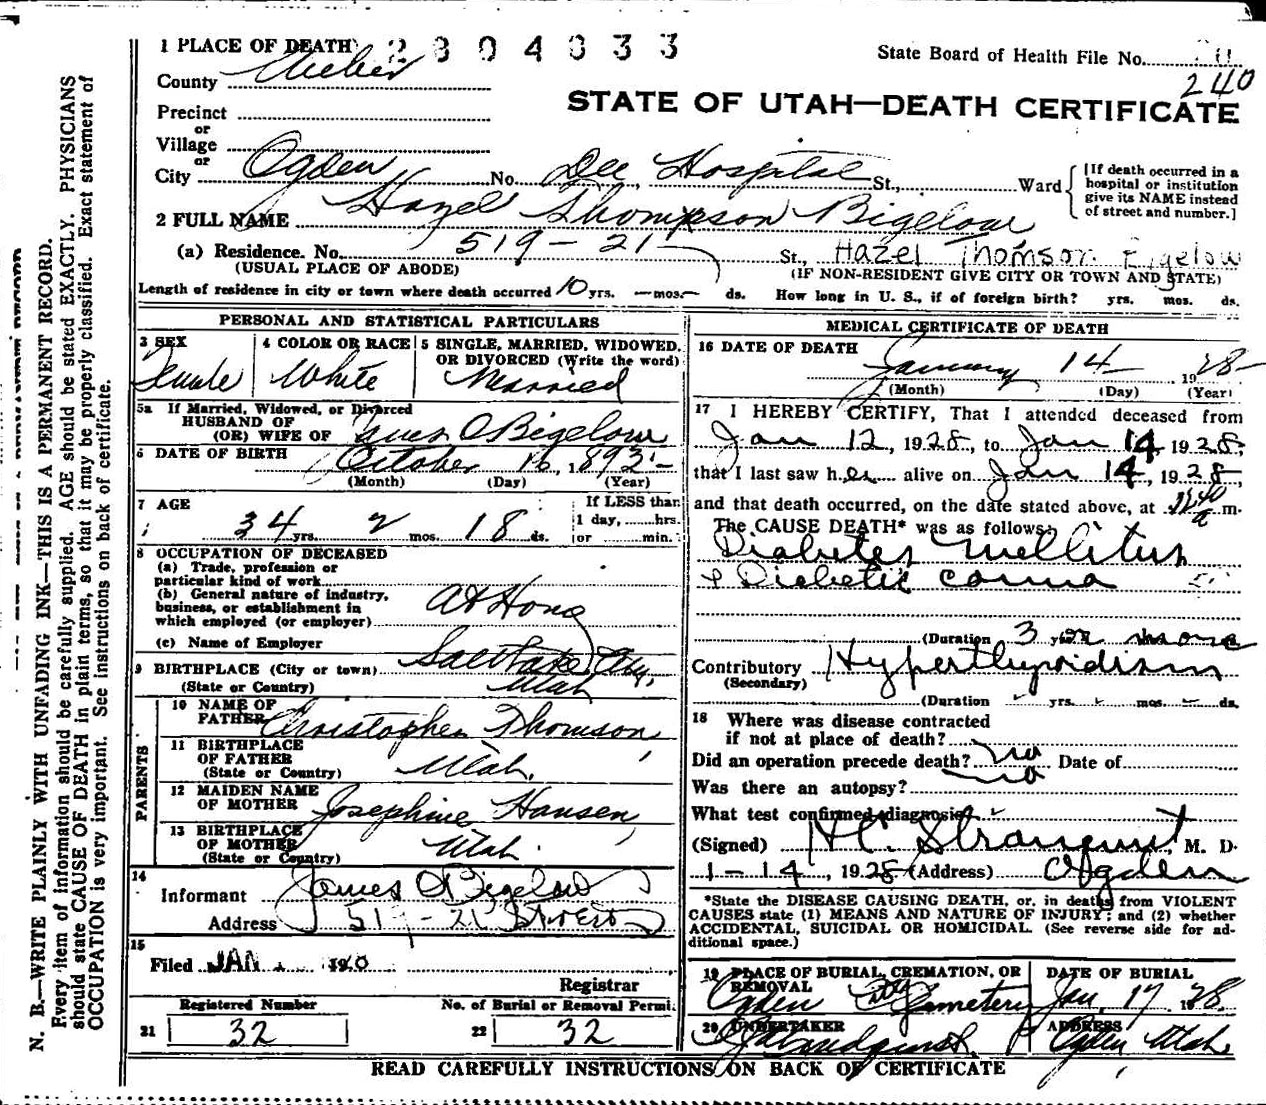 1 PLACE OF DEATH 2304033
State Board of Health File No.
240
County Weber
STATE OF UTAH—DEATH CERTIFICATE
Precinct
or
Village
or
City Ogden No. Dee Hospital St., Ward
[If death occurred in a hospital or institution give its NAME instead of street and number.]
2 FULL NAME Hazel Thompson Bigelow
(a) Residence. No. 519-21 St., Hazel Thomson Bigelow
(USUAL PLACE OF ABODE) (IF NON-RESIDENT GIVE CITY OR TOWN AND STATE)
Length of residence in city or town where death occurred 10 yrs. — mos. - ds. How long in U. S., if of foreign birth? yrs. mos. ds.
PERSONAL AND STATISTICAL PARTICULARS
3 SEX 4 COLOR OR RACE 5 SINGLE, MARRIED, WIDOWED, OR DIVORCED (Write the word)
Female White Married
5a If Married, Widowed, or Divorced
HUSBAND OF
(OR) WIFE OF James O Bigelow
6 DATE OF BIRTH October 16, 1893
(Month) (Day) (Year)
7 AGE If LESS than
1 day, hrs.
34 yrs. 2 mos. 18 ds. or min.
8 OCCUPATION OF DECEASED
(a) Trade, profession or
particular kind of work
(b) General nature of industry,
business, or establishment in
which employed (or employer) At Home
(c) Name of Employer
9 BIRTHPLACE (City or town) Salt Lake City,
(State or Country) Utah
PARENTS
10 NAME OF
FATHER Christopher Thomson
11 BIRTHPLACE
OF FATHER
(State or Country) Utah.
12 MAIDEN NAME
OF MOTHER Josephine Hansen,
13 BIRTHPLACE
OF MOTHER
(State or Country) Utah.
14
Informant James O Bigelow
Address 519-21 Street
15
Filed JAN
Registrar
Registered Number No. of Burial or Removal Permi.
21 32 22 32
MEDICAL CERTIFICATE OF DEATH
16 DATE OF DEATH
January 14 1928
(Month) (Day) (Year)
17 I HEREBY CERTIFY, That I attended deceased from
Jan 12, 1928, to Jan 14 1928,
that I last saw her alive on Jan 14, 1928,
and that death occurred, on the date stated above, at a m.
The CAUSE DEATH* was as follows:
Diabetes mellitus
+ Diabetic coma
(Duration 3 yrs mos
Contributory Hyperthyroidism
(Secondary)
(Duration yrs. mos. ds.
18 Where was disease contracted
if not at place of death?
Did an operation precede death? no Date of
Was there an autopsy? no
What test confirmed diagnosis
(Signed) H.C. Stranquist, M. D.
1-14, 1928 (Address) Ogden
*State the DISEASE CAUSING DEATH, or, in deaths from VIOLENT
CAUSES state (1) MEANS AND NATURE OF INJURY; and (2) whether
ACCIDENTAL, SUICIDAL OR HOMICIDAL. (See reverse side for ad-
ditional space.)
19 PLACE OF BURIAL, CREMATION, OR REMOVAL DATE OF BURIAL
Ogden City Cemetery Jan. 17 1928.
20 UNDERTAKER ADDRESS
Lindquist Ogden Utah
READ CAREFULLY INSTRUCTIONS ON BACK OF CERTIFICATE
N. B.—WRITE PLAINLY WITH UNFADING INK—THIS IS A PERMANENT RECORD.
Every item of information should be carefully supplied. AGE should be stated EXACTLY. PHYSICIANS
should state CAUSE OF DEATH in plain terms, so that it may be properly classified. Exact statement of
OCCUPATION is very important. See instructions on back of certificate.